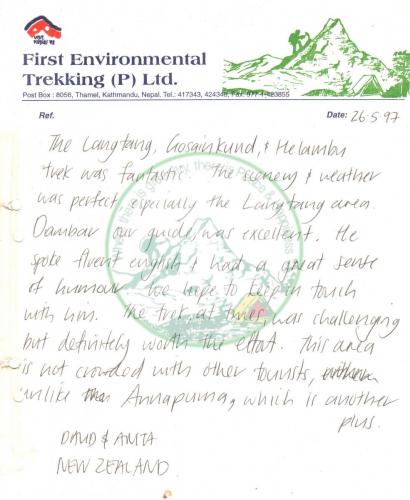 visit
nepal 98
First Environmental
Trekking (P) Ltd.
Post Box : 8056, Thamel, Kathmandu, Nepal. Tel.: 417343, 424346, Fax: 977-1-423855
Ref.
Date: 26-5-97
The Langtang, Gosainkund, & Helambu
trek was fantastic. The scenery & weather
was perfect, especially the Langtang area.
Dambar our guide, was excellent. He
spoke fluent english & had a great sense
of humour. We hope to keep in touch
with him. The trek at times, was challenging
but definitely worth the effort. This area
is not crowded with other tourists,
unlike Annapurna, which is another
plus.
DAVID & ANITA
NEW ZEALAND.